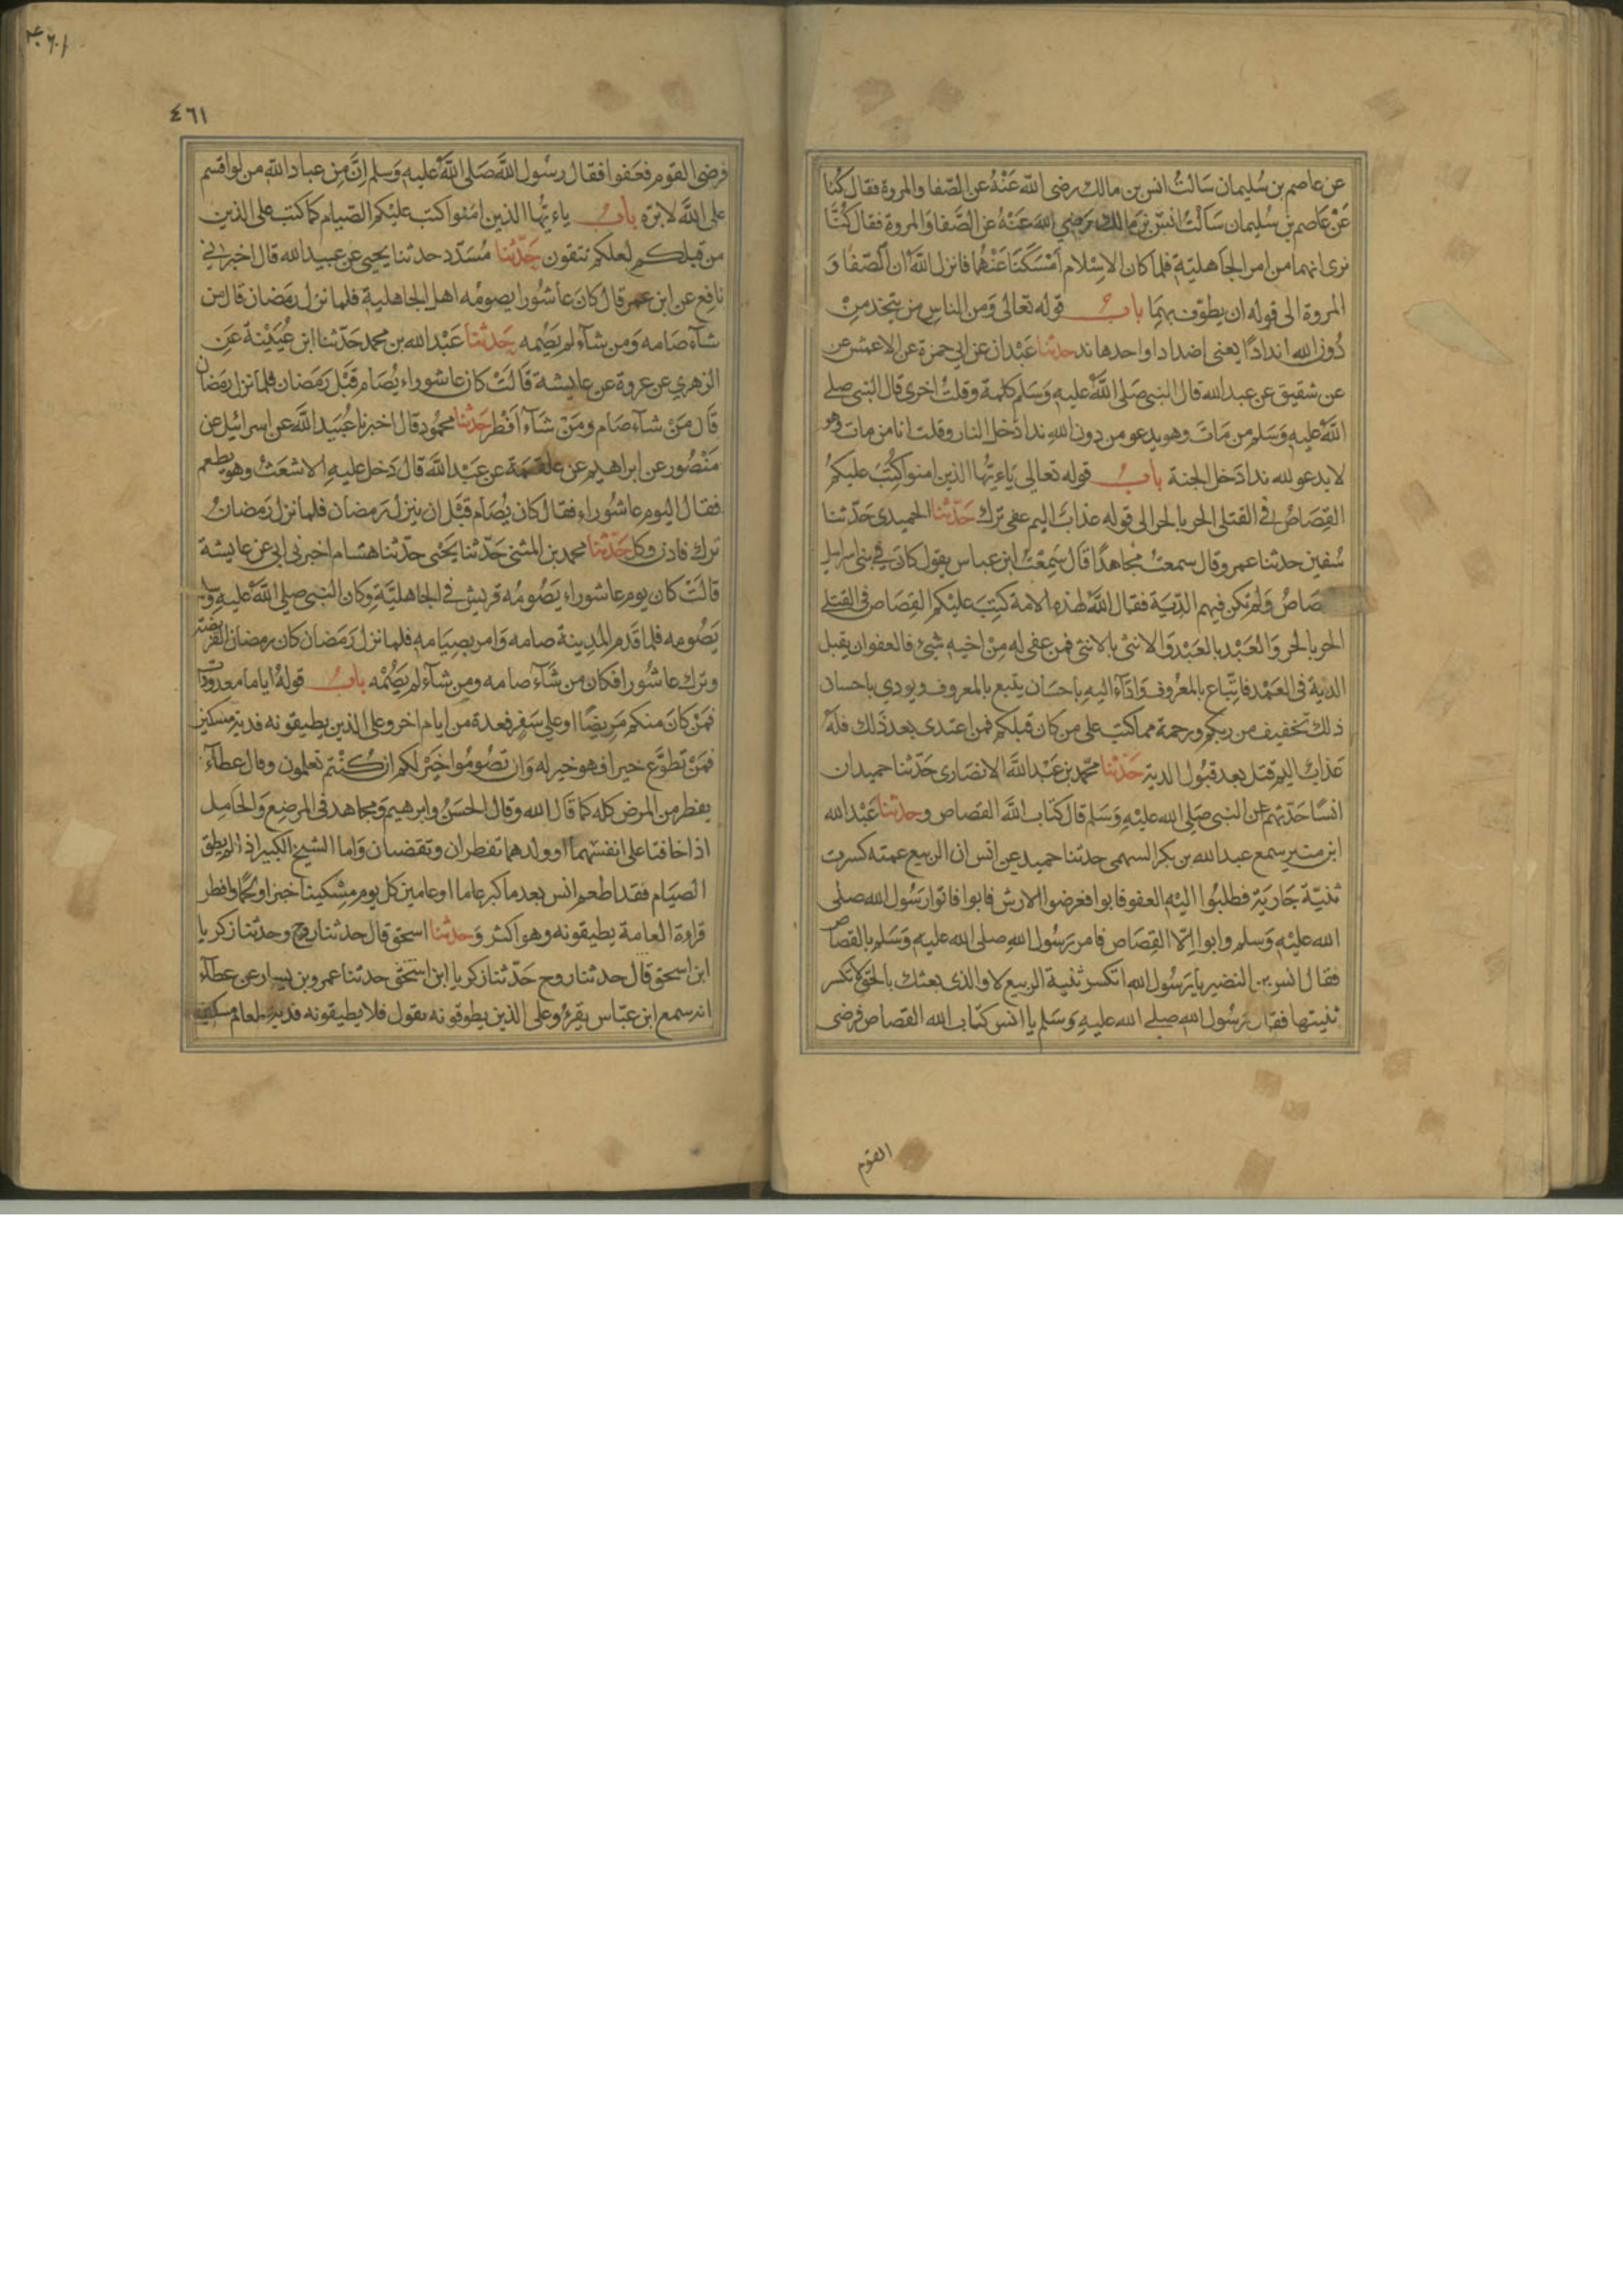 عن عاصم بن سليمان سالت انس بن مالك رضى الله عنه عن الصفا والمروة فقال كنا
عن عاصم بن سليمان سالت انس بن مالك رضي الله عنه عن الصفا والمروة فقال كنا
نرى انهما من امر الجاهلية فلما كان الاسلام امسكنا عنهما فانزل الله ان الصفا و
المروة الى قوله ان يطوف بهما باب قوله تعالى ومن الناس من يتخذ من
دون الله اندادا يعنى اضدادا واحدها ند حدثنا عبدان عن ابي حمزة عن الاعمش عن
عن شقيق عن عبد الله قال النبى صلى الله عليه وسلم كلمة وقلت اخرى قال النبى صلى
الله عليه وسلم من مات وهو يدعو من دون الله ندا دخل النار وقلت انا من مات وهو
لا يدعو لله ندا دخل الجنة باب قوله تعالى ياءيها الذين امنوا كتب عليكم
القصاص في القتلى الحر بالحر الى قوله عذاب اليم عفى ترك حدثنا الحميدى حدثنا
سفين حدثنا عمرو قال سمعت مجاهدا قال سمعت ابن عباس يقول كان في بنى اسرايل
صاص ولم تكن فيهم الدية فقال الله لهذه الامة كتب عليكم القصاص فى القتلى
الحر بالحر والعبد بالعبد والانثى بالانثى فمن عفى له من اخيه شئ فالعفو ان يقبل
الدية فى العمد فاتباع بالمعروف واداء اليه باحسان يتبع بالمعروف ويودي باحسان
ذلك تخفيف من ربكم ورحمة مما كتب على من كان قبلكم فمن اعتدى بعد ذلك فله
عذاب اليم قتل بعد قبول الدية حدثنا محمد بن عبد الله الانصارى حدثنا حميد ان
انسا حدثهم عن النبى صلى الله عليه وسلم قال كتاب الله القصاص وحدثنا عبد الله
ابن منير سمع عبد الله بن بكر السهمى حدثنا حميد عن انس ان الربيع عمته كسرت
ثنية جارية فطلبوا اليها العفو فابوا فعرضوا الارش فابوا فاتوا رسول الله صلى
الله عليه وسلم وابوا الا القصاص فامر رسول الله صلى الله عليه وسلم بالقصاص
فقال انس بن النضير يا رسول الله اتكسر ثنية الربيع لا والذى بعثك بالحق لا تكسر
ثنيتها فقال رسول الله صلى الله عليه وسلم يا انس كتاب الله القصاص فرضى
القوم
٤٦١
فرضى القوم فعفوا فقال رسول الله صلى الله عليه وسلم ان من عباد الله من لو اقسم
على الله لابره باب ياءيها الذين امنوا كتب عليكم الصيام كما كتب على الذين
من قبلكم لعلكم تتقون حدثنا مسدد حدثنا يحيى عن عبيد الله قال اخبرني
نافع عن ابن عمر قال كان عاشورا يصومه اهل الجاهلية فلما نزل رمضان قال من
شاء صامه ومن شاء لم يصمه حدثنا عبد الله بن محمد حدثنا ابن عيينة عن
الزهري عن عروة عن عايشة قالت كان عاشوراء يصام قبل رمضان فلما نزل رمضان
قال من شاء صام ومن شاء افطر حدثنا محمود قال اخبرنا عبيد الله عن اسرائيل عن
منصور عن ابراهيم عن علقمة عن عبد الله قال دخل عليه الاشعث وهو يطعم
فقال اليوم عاشوراء فقال كان يصام قبل ان ينزل رمضان فلما نزل رمضان
ترك فادن وكل حدثنا محمد بن المثنى حدثنا يحيى حدثنا هشام اخبرنى ابى عن عايشة
قالت كان يوم عاشوراء يصومه قريش في الجاهلية وكان النبى صلى الله عليه وسلم
يصومه فلما قدم المدينة صامه وامر بصيامه فلما نزل رمضان كان رمضان الفريضة
وترك عاشورا فكان من شاء صامه ومن شاء لم يصمه باب قوله اياما معدودات
فمن كان منكم مريضا او على سفر فعدة من ايام اخر وعلى الذين يطيقونه فدية مسكين
فمن تطوع خيرا فهو خير له وان تصوموا خير لكم ان كنتم تعلمون وقال عطاء
يفطر من المرض كله كما قال الله وقال الحسن وابرهيم ومجاهد فى المرضع والحامل
اذا خافتا على انفسهما او ولدهما تفطران وتقضيان واما الشيخ الكبير اذا لم يطق
الصيام فقد اطعم انس بعد ما كبر عاما او عامين كل يوم مسكينا خبزا ولحما وافطر
قراءة العامة يطيقونه وهو اكثر وحدثنا اسحق قال حدثنا روح وحدثنا زكريا
ابن اسحق قال حدثنا روح حدثنا زكريا ابن اسحق حدثنا عمرو بن يسار عن عطاء
انه سمع ابن عباس يقرئ وعلى الذين يطوقونه يقول فلا يطيقونه فدية طعام مسكين